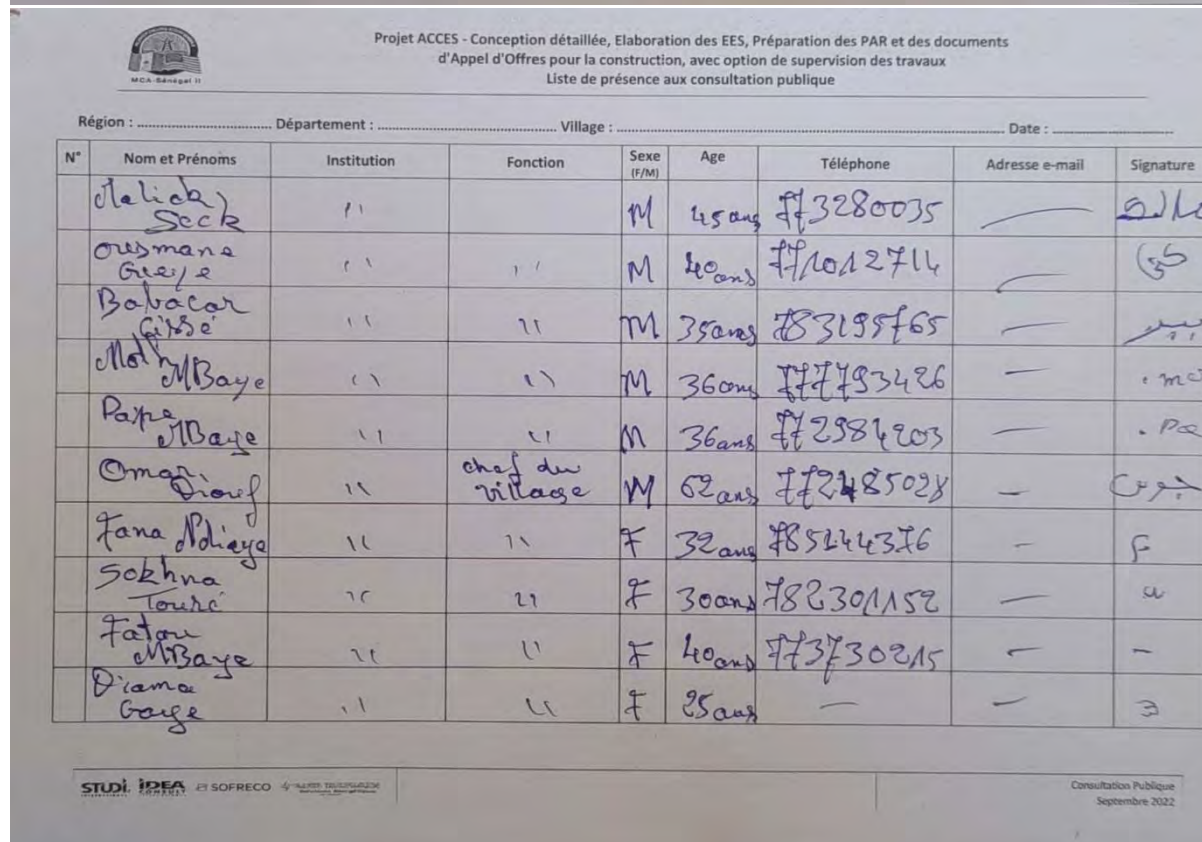 MCA-Sénégal II
Projet ACCES - Conception détaillée, Elaboration des EES, Préparation des PAR et des documents
d'Appel d'Offres pour la construction, avec option de supervision des travaux
Liste de présence aux consultation publique
Région : ................................ Département : ................................ Village : ................................ Date : ................................
N° Nom et Prénoms Institution Fonction Sexe (F/M) Age Téléphone Adresse e-mail Signature
Malick Seck " M 45 ans 773280035 —
Ousmane Gueye " " M 40 ans 771012714 —
Babacar Cissé " " M 35 ans 783195765 —
MBaye " " M 36 ans 777793426 —
Pape MBaye " " M 36 ans 772984203 —
Omar Diouf " chef du village M 62 ans 772485028 —
Fana Ndiaye " " F 32 ans 785244376 — F
Sokhna Touré " " F 30 ans 782301152 —
Fatou MBaye " " F 40 ans 773730215 — —
Diama Gaye " " F 25 ans — —
STUDI. IDEA CONSULT ET SOFRECO
Consultation Publique
Septembre 2022